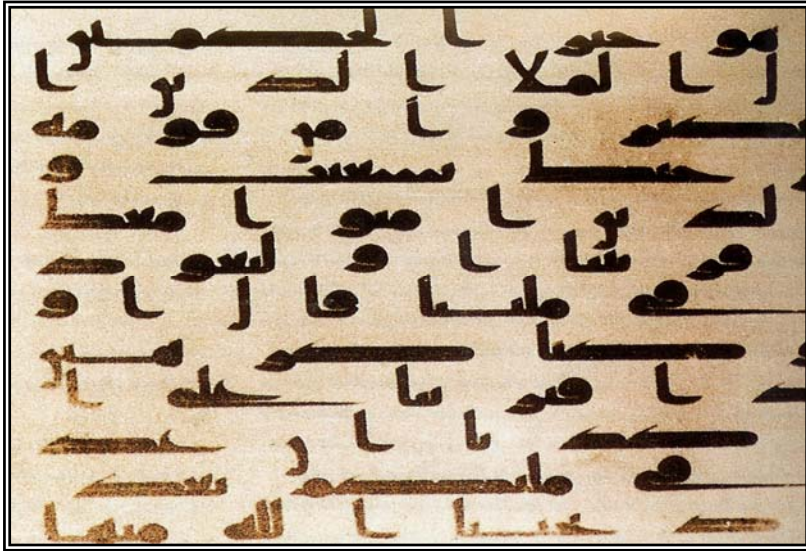 هو خير ا لحكمين
ل ا لملا ا لذين ا
ستكبر و ا من قومه
و
لذين ا منو ا معك
من قريتنا ا و لتعود
في ملتنا قا ل ا و
و كنا كر هين
قد ا فترينا على ا
كذبا ا ن عد
في ملتكم بعد
نجينا ا لله منها